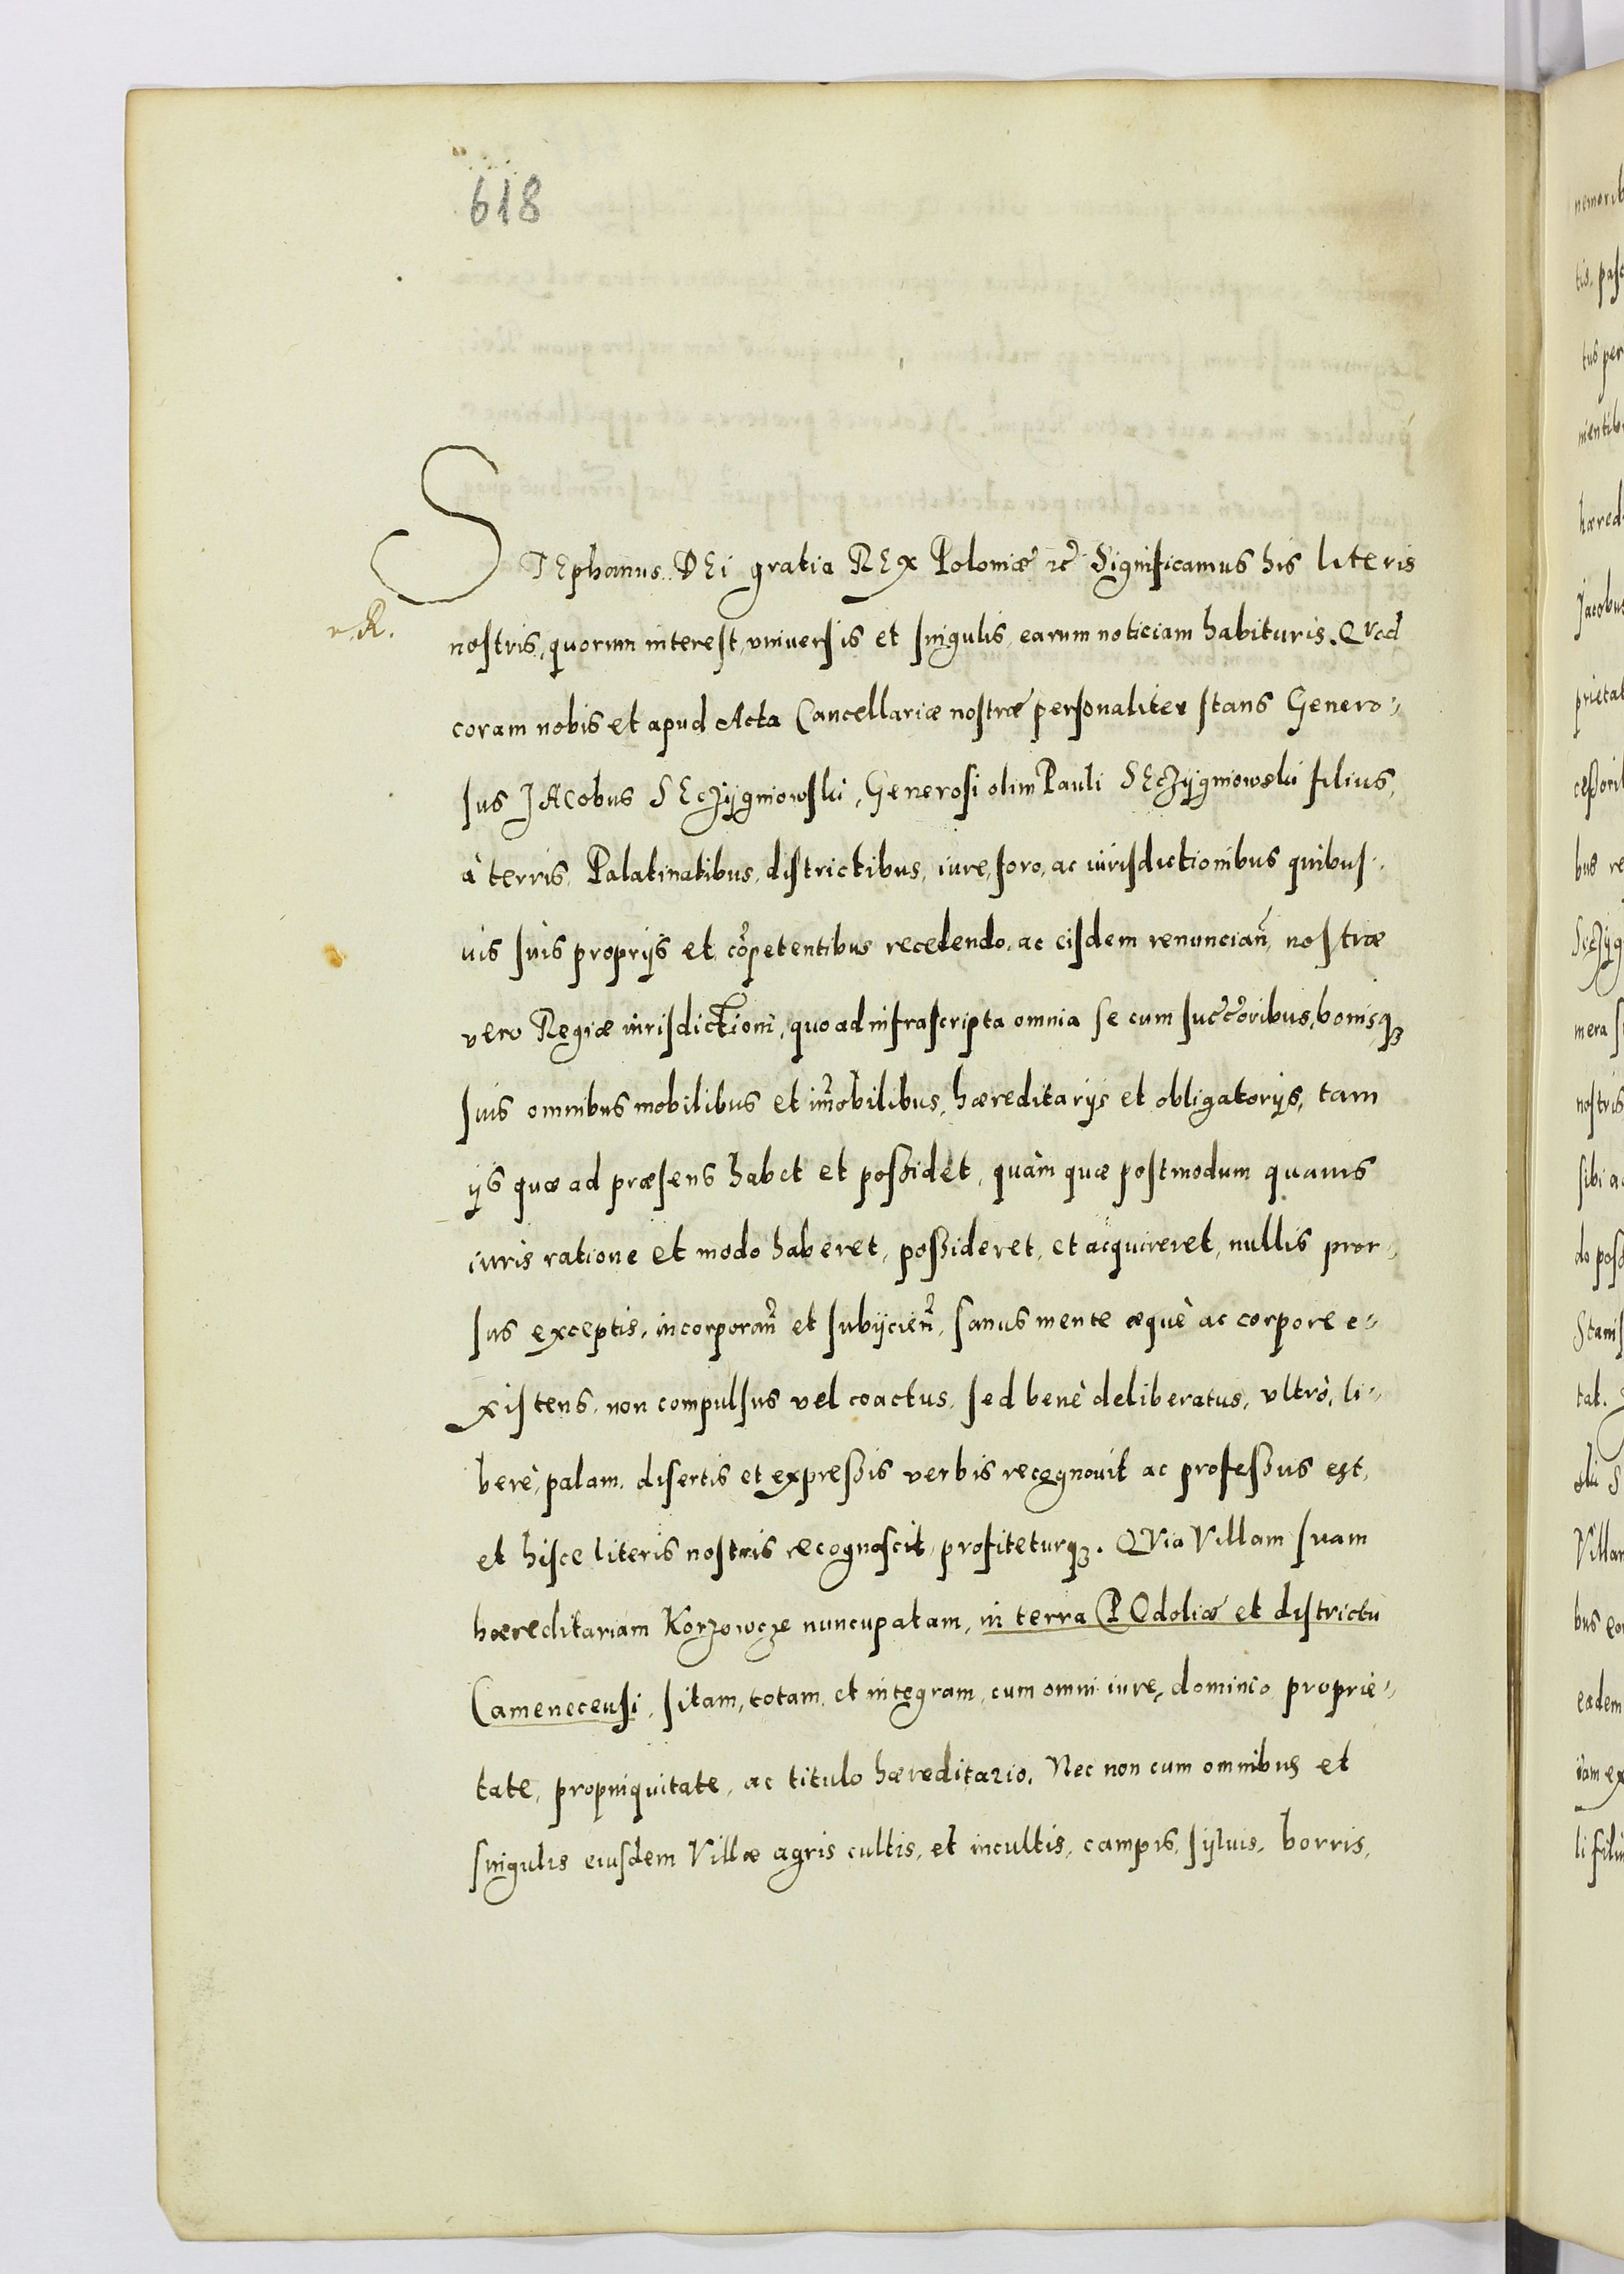 618
STEphanus DEi gratia REx Poloniæ ꝛc̃ Significamus his literis
R.
nostris, quorum interest, vniuersis et singulis, earum noticiam habituris. QVod
coram nobis et apud Acta Cancellariæ nostræ personaliter stans Genero⸗
sus JACobus SEcZÿgniowski, Generosi olim Pauli SEcZÿgniowski filius,
à terris, Palatinatibus, districtibus, iure, foro, ac iurisdictionibus quibus⸗
uis suis proprijs et cõpetentibus recedendo, ac eisdem renuncian̄, nostræ
vero Regiæ iurisdictioni, quo ad infrascripta omnia se cum succ̃oribus, bonisqꝫ
suis omnibus mobilibus et im̃obilibus, hæreditarijs et obligatorijs, tam
ijs quæ ad præsens habet et poßidet, quàm quæ postmodum quauis
iuris ratione et modo haberet, poßideret, et acquireret, nullis pror⸗
sus exceptis, incorporan̄ et subijcien̄, sanus mente æquè ac corpore e⸗
xistens, non compulsus vel coactus, sed benè deliberatus, vltrò, li⸗
berè, palam, disertis et expreßis verbis recognouit ac profeßus est,
et hisce literis nostris recognoscit, profiteturqꝫ. QVia Villam suam
hæreditariam Korzowcze nuncupatam, in terra POdoliæ et districtu
Camenecensi, sitam, totam, et integram, cum omni iure, dominio proprie⸗
tate, propinquitate, ac titulo hæreditario, Nec non cum omnibus et
singulis eiusdem Villæ agris cultis, et incultis, campis, sÿluis, borris,
nemorib
tis, pasc
tus per
mentib
hæred
Jacobus
prietat
ceßorib
bus re
Seczÿg
mera s
nostris
sibi ac
do poß
Stanis
tat.
ski S
Villam
bus eo
eadem
dam ex
li filiu